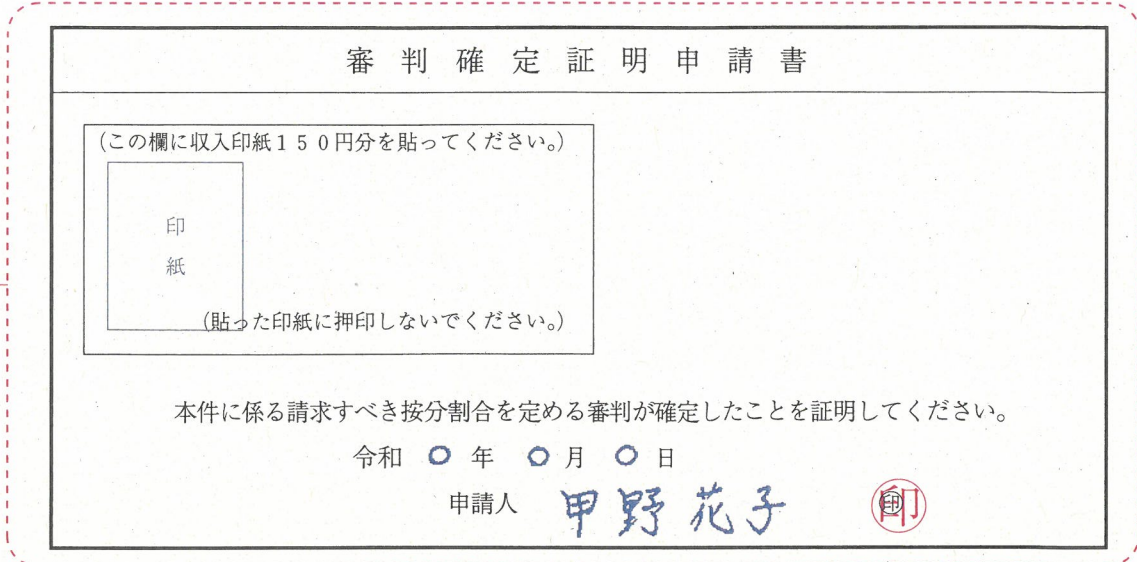 審判確定証明申請書
(この欄に収入印紙１５０円分を貼ってください。)
印
紙
(貼った印紙に押印しないでください。)
本件に係る請求すべき按分割合を定める審判が確定したことを証明してください。
令和 〇 年 〇 月 〇 日
申請人 甲野 花子 印 ㊞